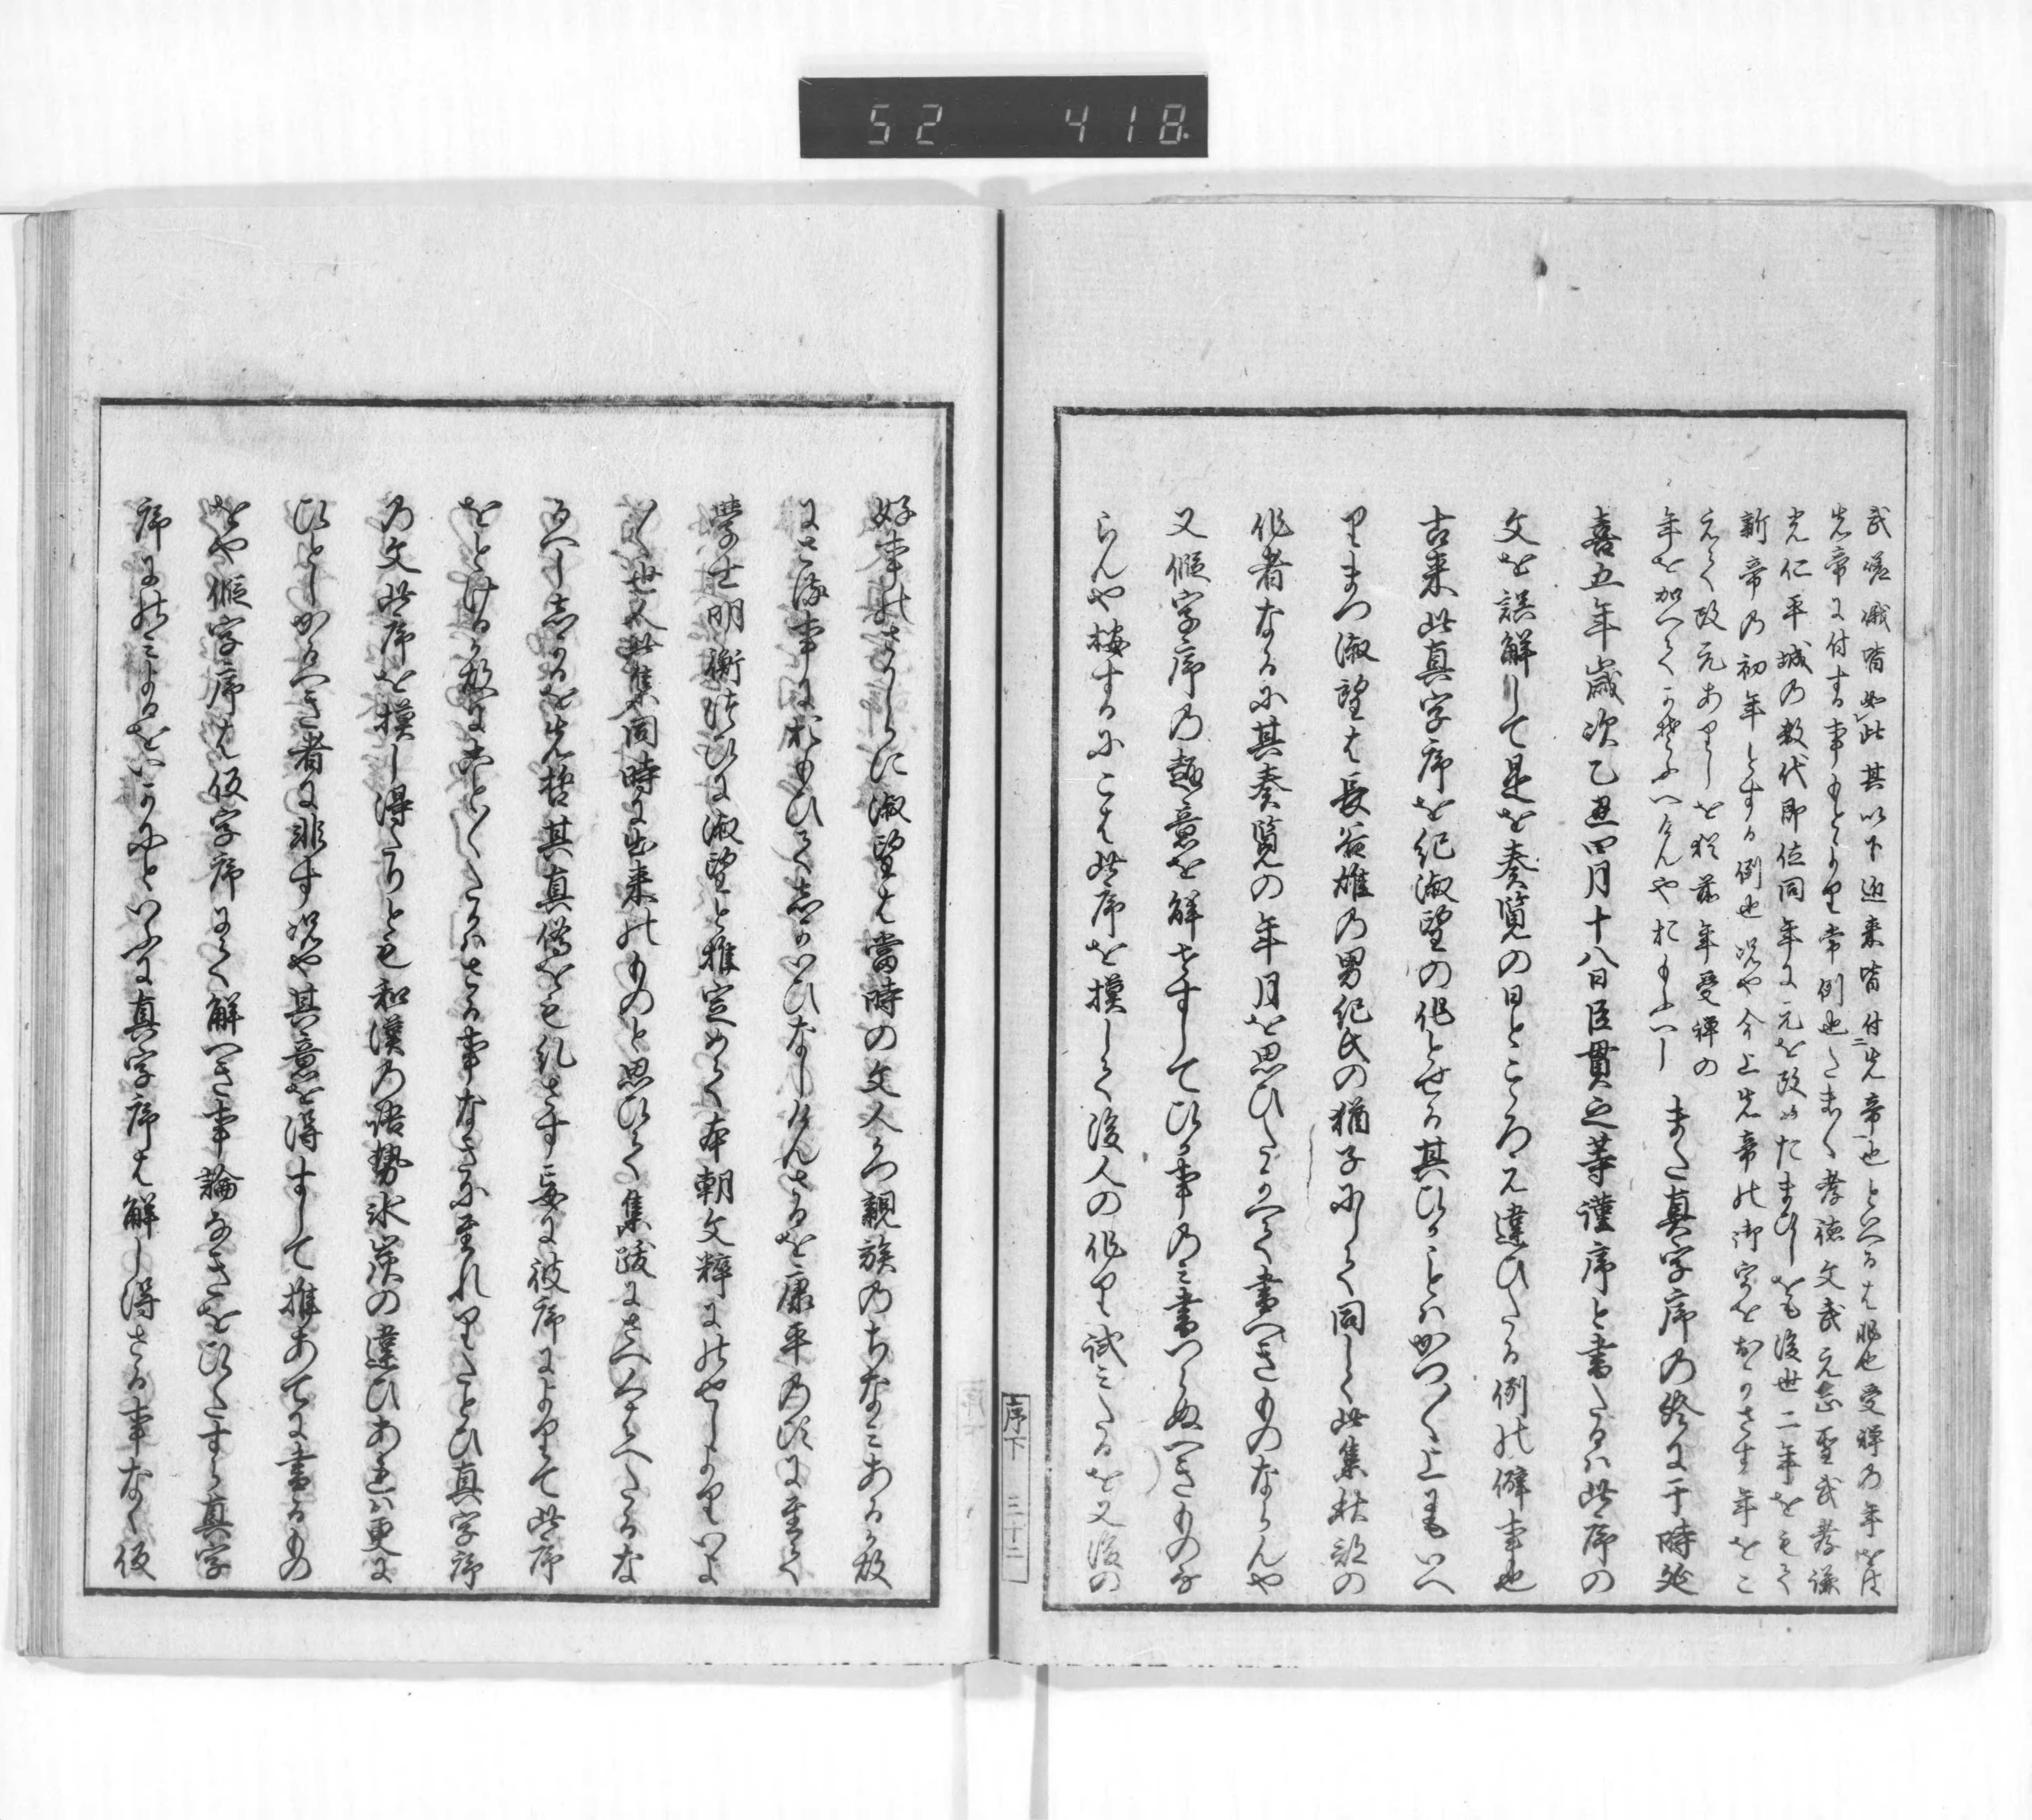 52 418
武嵯峨皆如此其以下近来皆付先帝也といへるは非也受禅の年をは
先帝に付する事もとより常例也たまく孝徳文武元忠聖武孝謙
光仁平城の数代即位同年に元を改めたまひしをも後世二年をもて
新帝の初年とする例也況や今上先帝の御字をおかさす年をこ
えて改元ありしを猶前年受禅の
年を加へてかそふへけんやおもふへし
また真字序の終に于時延
喜五年歳次乙丑四月十八日臣貫之等謹序と書たるは此序の
文を誤解して是を奏覧の日ところえ違ひたる例の僻事也
古来此真字序を紀淑望の作とせる其ひかことはかつ〱上にもいへ
りまつ淑望は長谷雄の男紀氏の猶子にして同しく此集秋部の
作者なるに其奏覧の年月を思ひたかへて書へきものならんや
又仮字序の趣意を解せすしてひか事のみ書つらぬへきものな
らんや按するにこは此序を摸して後人の作り試みたるを又後の
序下 三十二
好事のさかしらに淑望は當時の文人かつ親族のちなみあるか故
にさる事におもひてしかいひなしけんさるを康平の頃に至て
學士明衡つひに淑望と推定めて本朝文粋にのせしよりいよ
〱世人此集同時に出来のものと思ひて集跋にさへくはへたるな
るへししかるを先哲其真偽をも糺さす妄に彼序によりて此序
をとけるか故にこと〱くたかはさる事なきに至れりたとひ真字序
の文此序を摸し得たりとも和漢の語勢氷炭の違ひあれは更に
ひとしかるへき者に非す況や其意を得すして推あてに書るもの
をや仮字序は仮字序にて解へき事論なきをひたすら真字
序にのみよるをいかにといふに真字序は解し得さる事なく仮